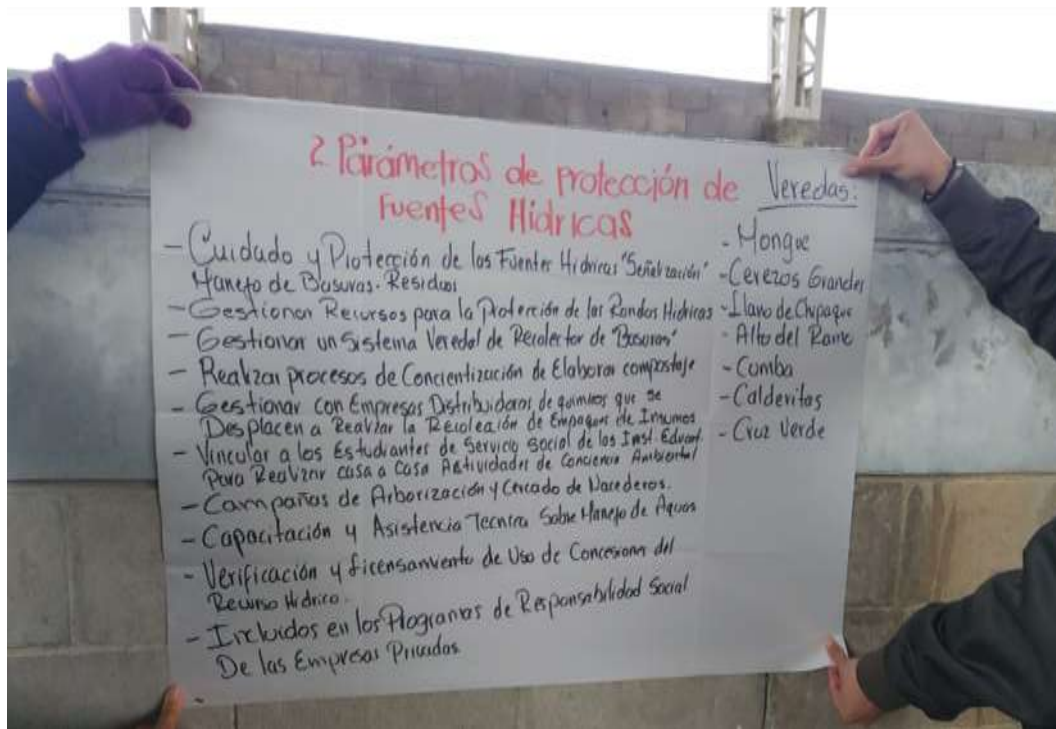 2 Parámetros de protección de
Fuentes Hidricas
- Cuidado y Protección de las Fuentes Hidricas "Señalización"
Manejo de Basuras. Residuos
- Gestionar Recursos para la Protección de las Rondas Hidricas
- Gestionar un Sistema Veredal de Recolector de "Basuras"
- Realizar procesos de Concientización de Elaborar compostaje
- Gestionar con Empresas Distribuidoras de quimicos que se
Desplacen a Realizar la Recoleción de Empaques de Insumos
- Vincular a los Estudiantes de Servicio Social de las Inst. Educat.
Para Realizar casa a Casa Actividades de Conciencia Ambiental
- Campañas de Arborización y Cercado de Nacederos.
- Capacitación y Asistencia Tecnica Sobre Manejo de Aguas
- Verificación y licensamiento de Uso de Concesiones del
Recurso Hidrico.
- Incluidos en los Programas de Responsabilidad Social
De las Empresas Privadas
-
Veredas:
- Mongue
- Cerezos Grandes
- Llano de Chipaque
- Alto del Ramo
- Cumba
- Calderitas
- Cruz Verde